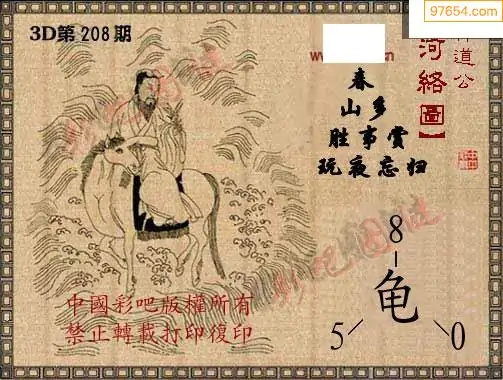 97654.com
3D第208期
www.
道公
河絡圖】
春
山多
胜事赏
玩夜忘归
彩吧图迷
8
龟
5 0
中國彩吧版權所有
禁止轉載打印復印